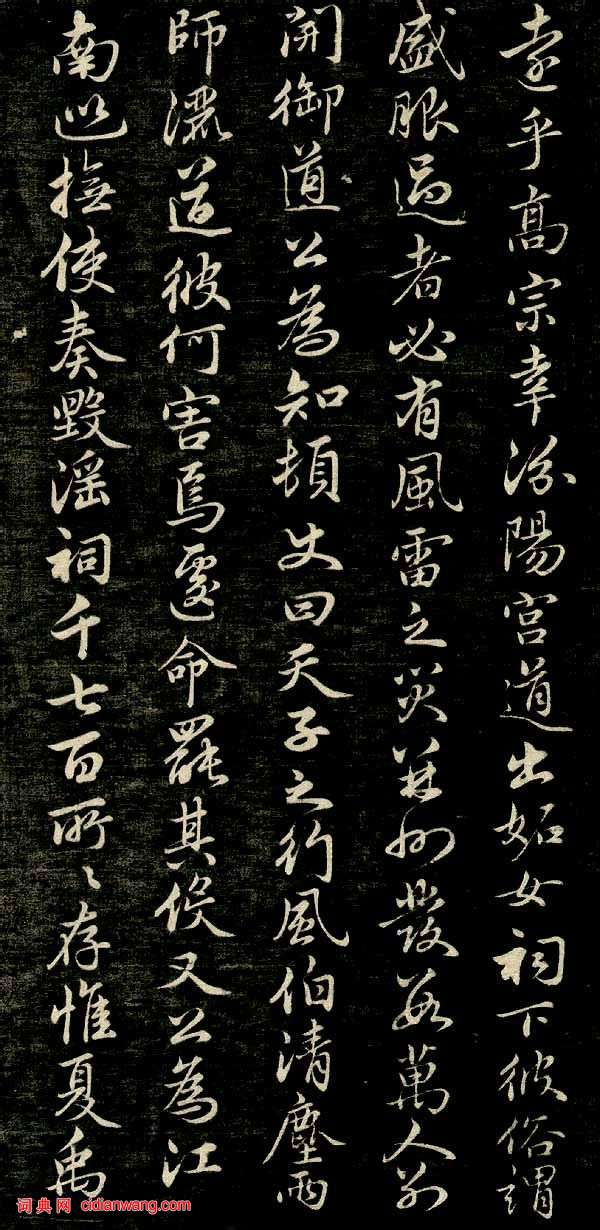 遠乎高宗幸汾陽宮道出妬女祠下彼俗謂
盛服過者必有風雷之災并州發數萬人別
開御道公為知頓史曰天子之行風伯清塵雨
師灑道彼何害焉遽命罷其役又公為江
南巡撫使奏毀淫祠千七百所〻存惟夏禹
词典网 cidianwang.com